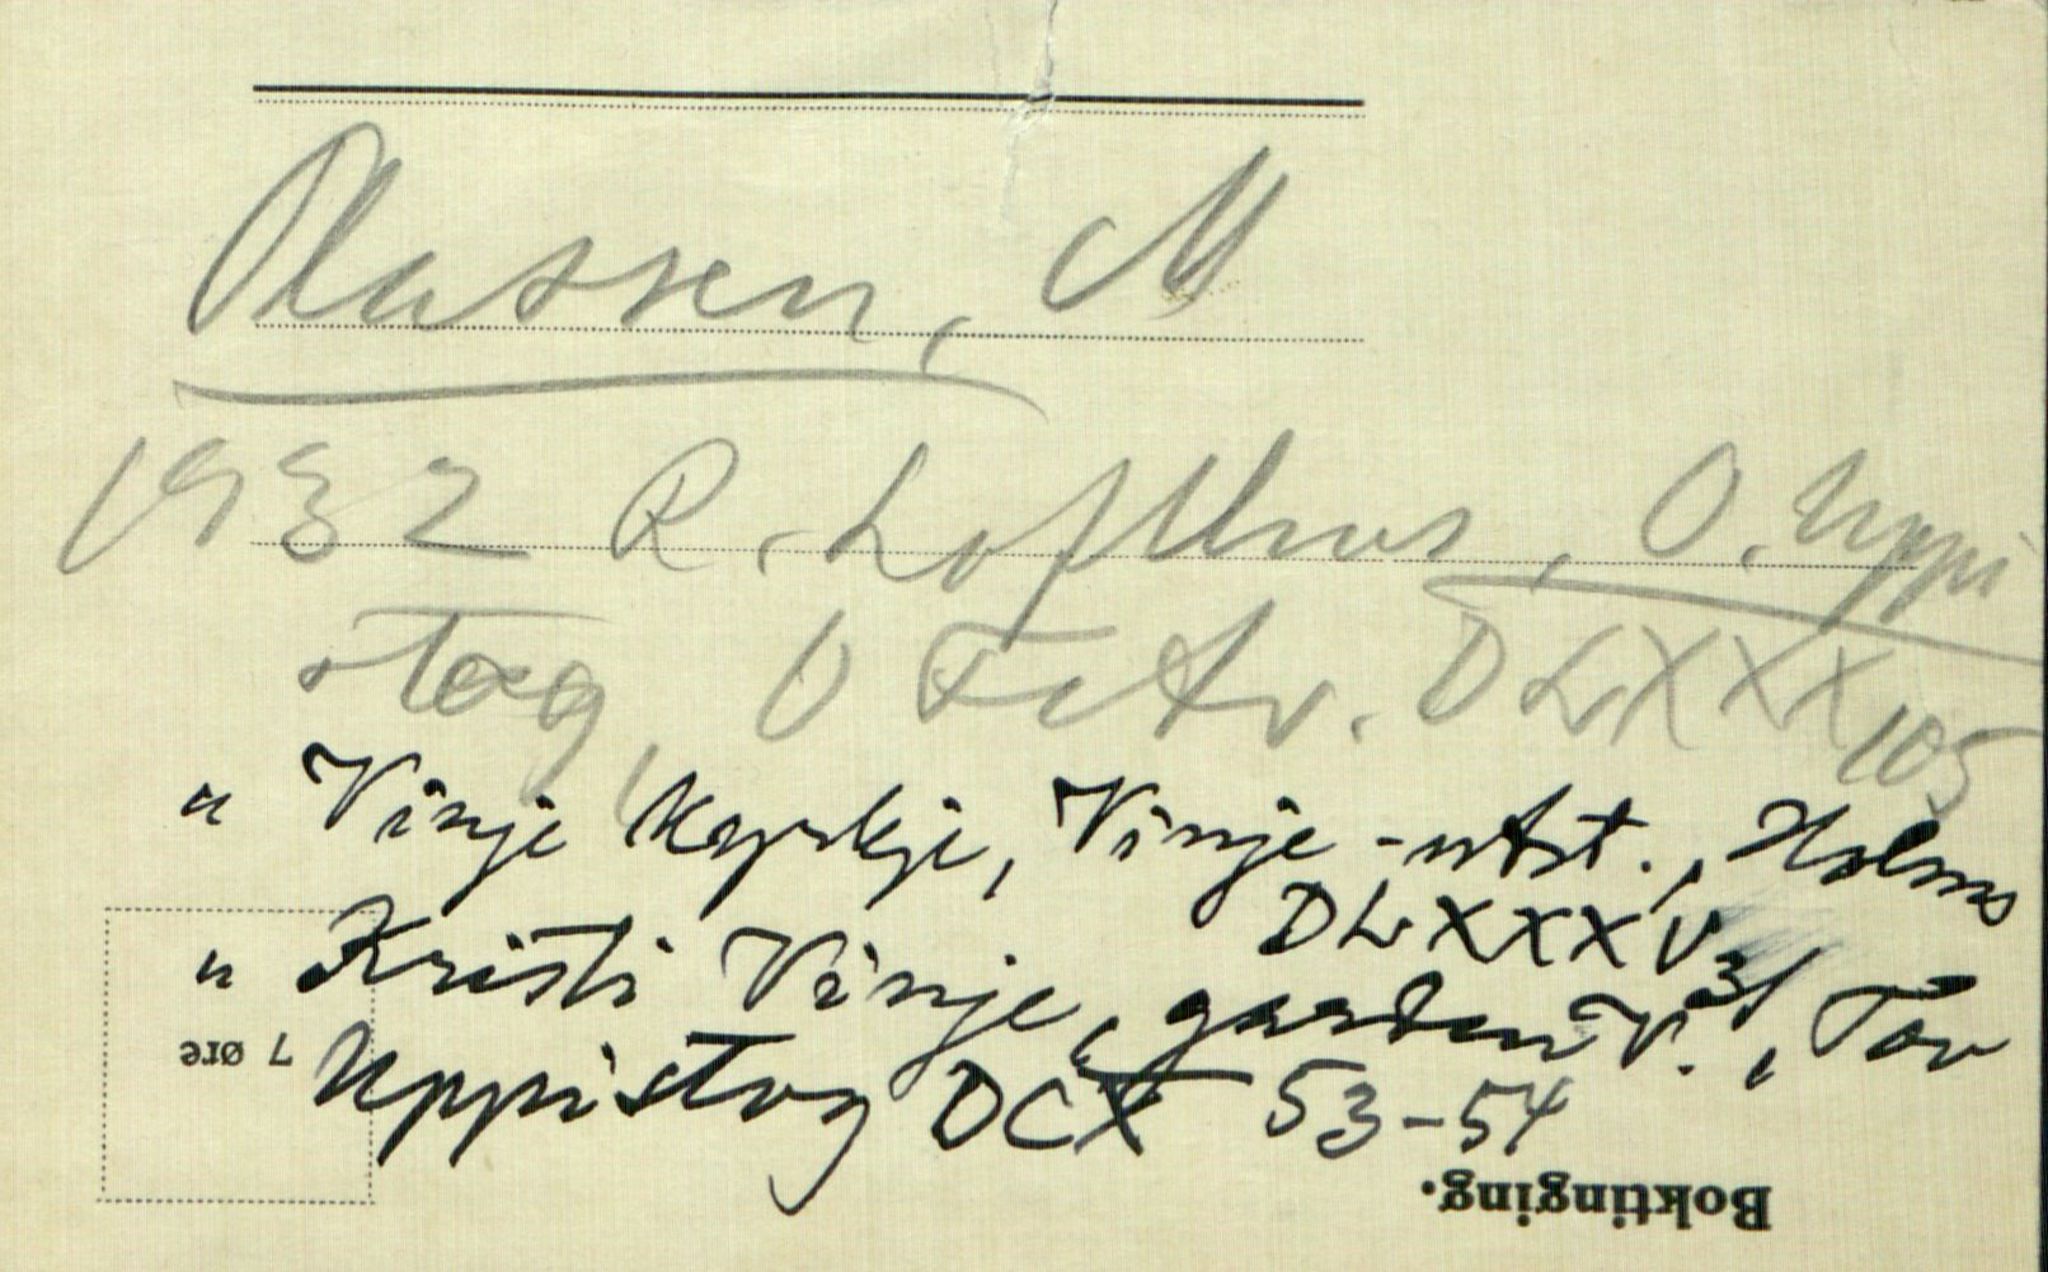 Olassen, M
1932 R. Lofthus, O. Uppi
stog, O DLXXX 105
" Vinje kyrkje, Vinje-utst., Holms
DLXXXV 31
" Kristi Vinje, garden V., Tov
Uppistog DCX 53-54
7 øre
Boktinging.